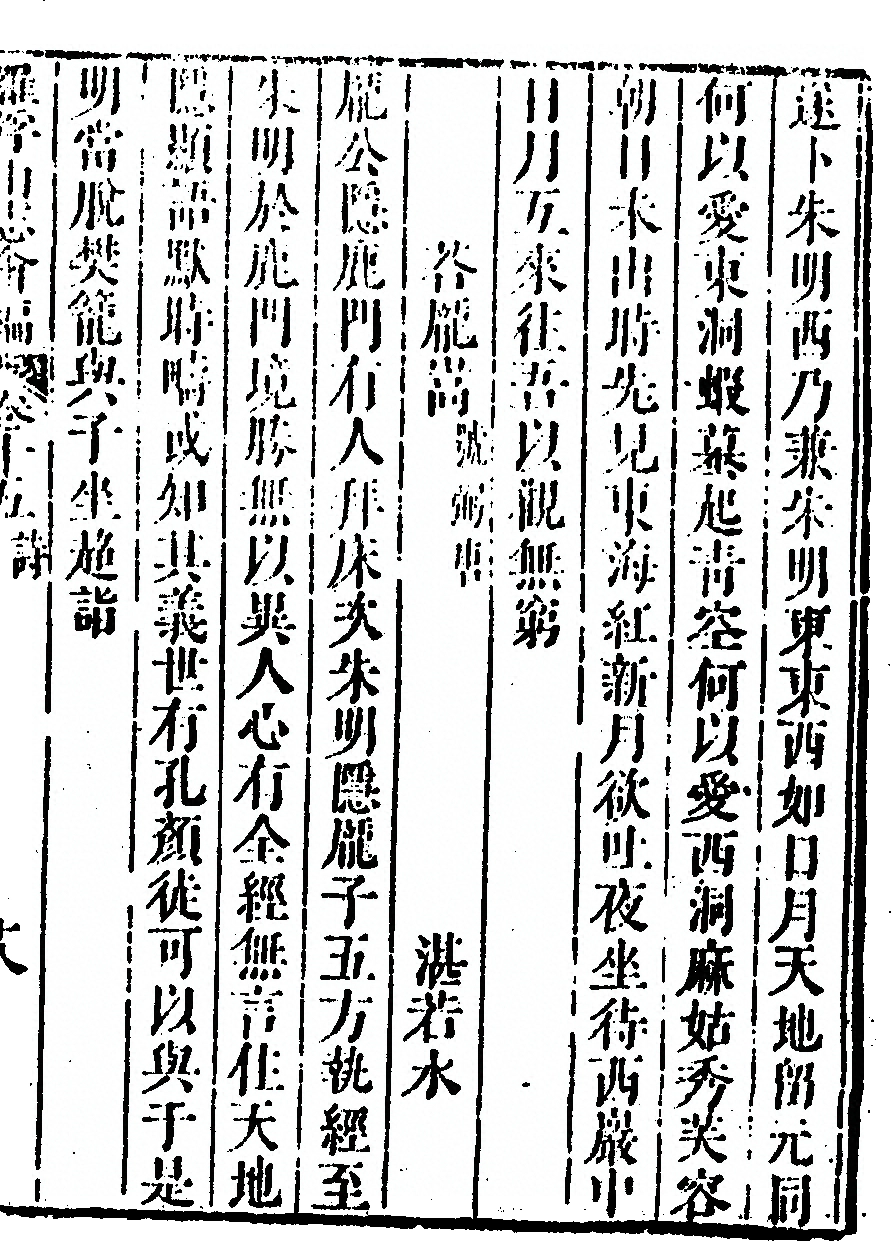 遂卜朱明西乃兼朱明東東西如日月天地留元同
何以愛東洞蝦蟇起青空何以愛西洞麻姑秀芙容
朝日未出時先見東海紅新月欲吐夜坐待西巖中
日月互來往吾以觀無窮
荅龐嵩號弼唐 湛若水
龐公隱鹿門有人拜床次朱明隱龐子五方執經至
朱明於鹿門境勝無以異人心有全經無言住天地
隱顯語默時疇或知其義世有孔顏徒可以與于是
明當脫樊籠與子坐超詣
羅浮山志會編 卷十五 詩